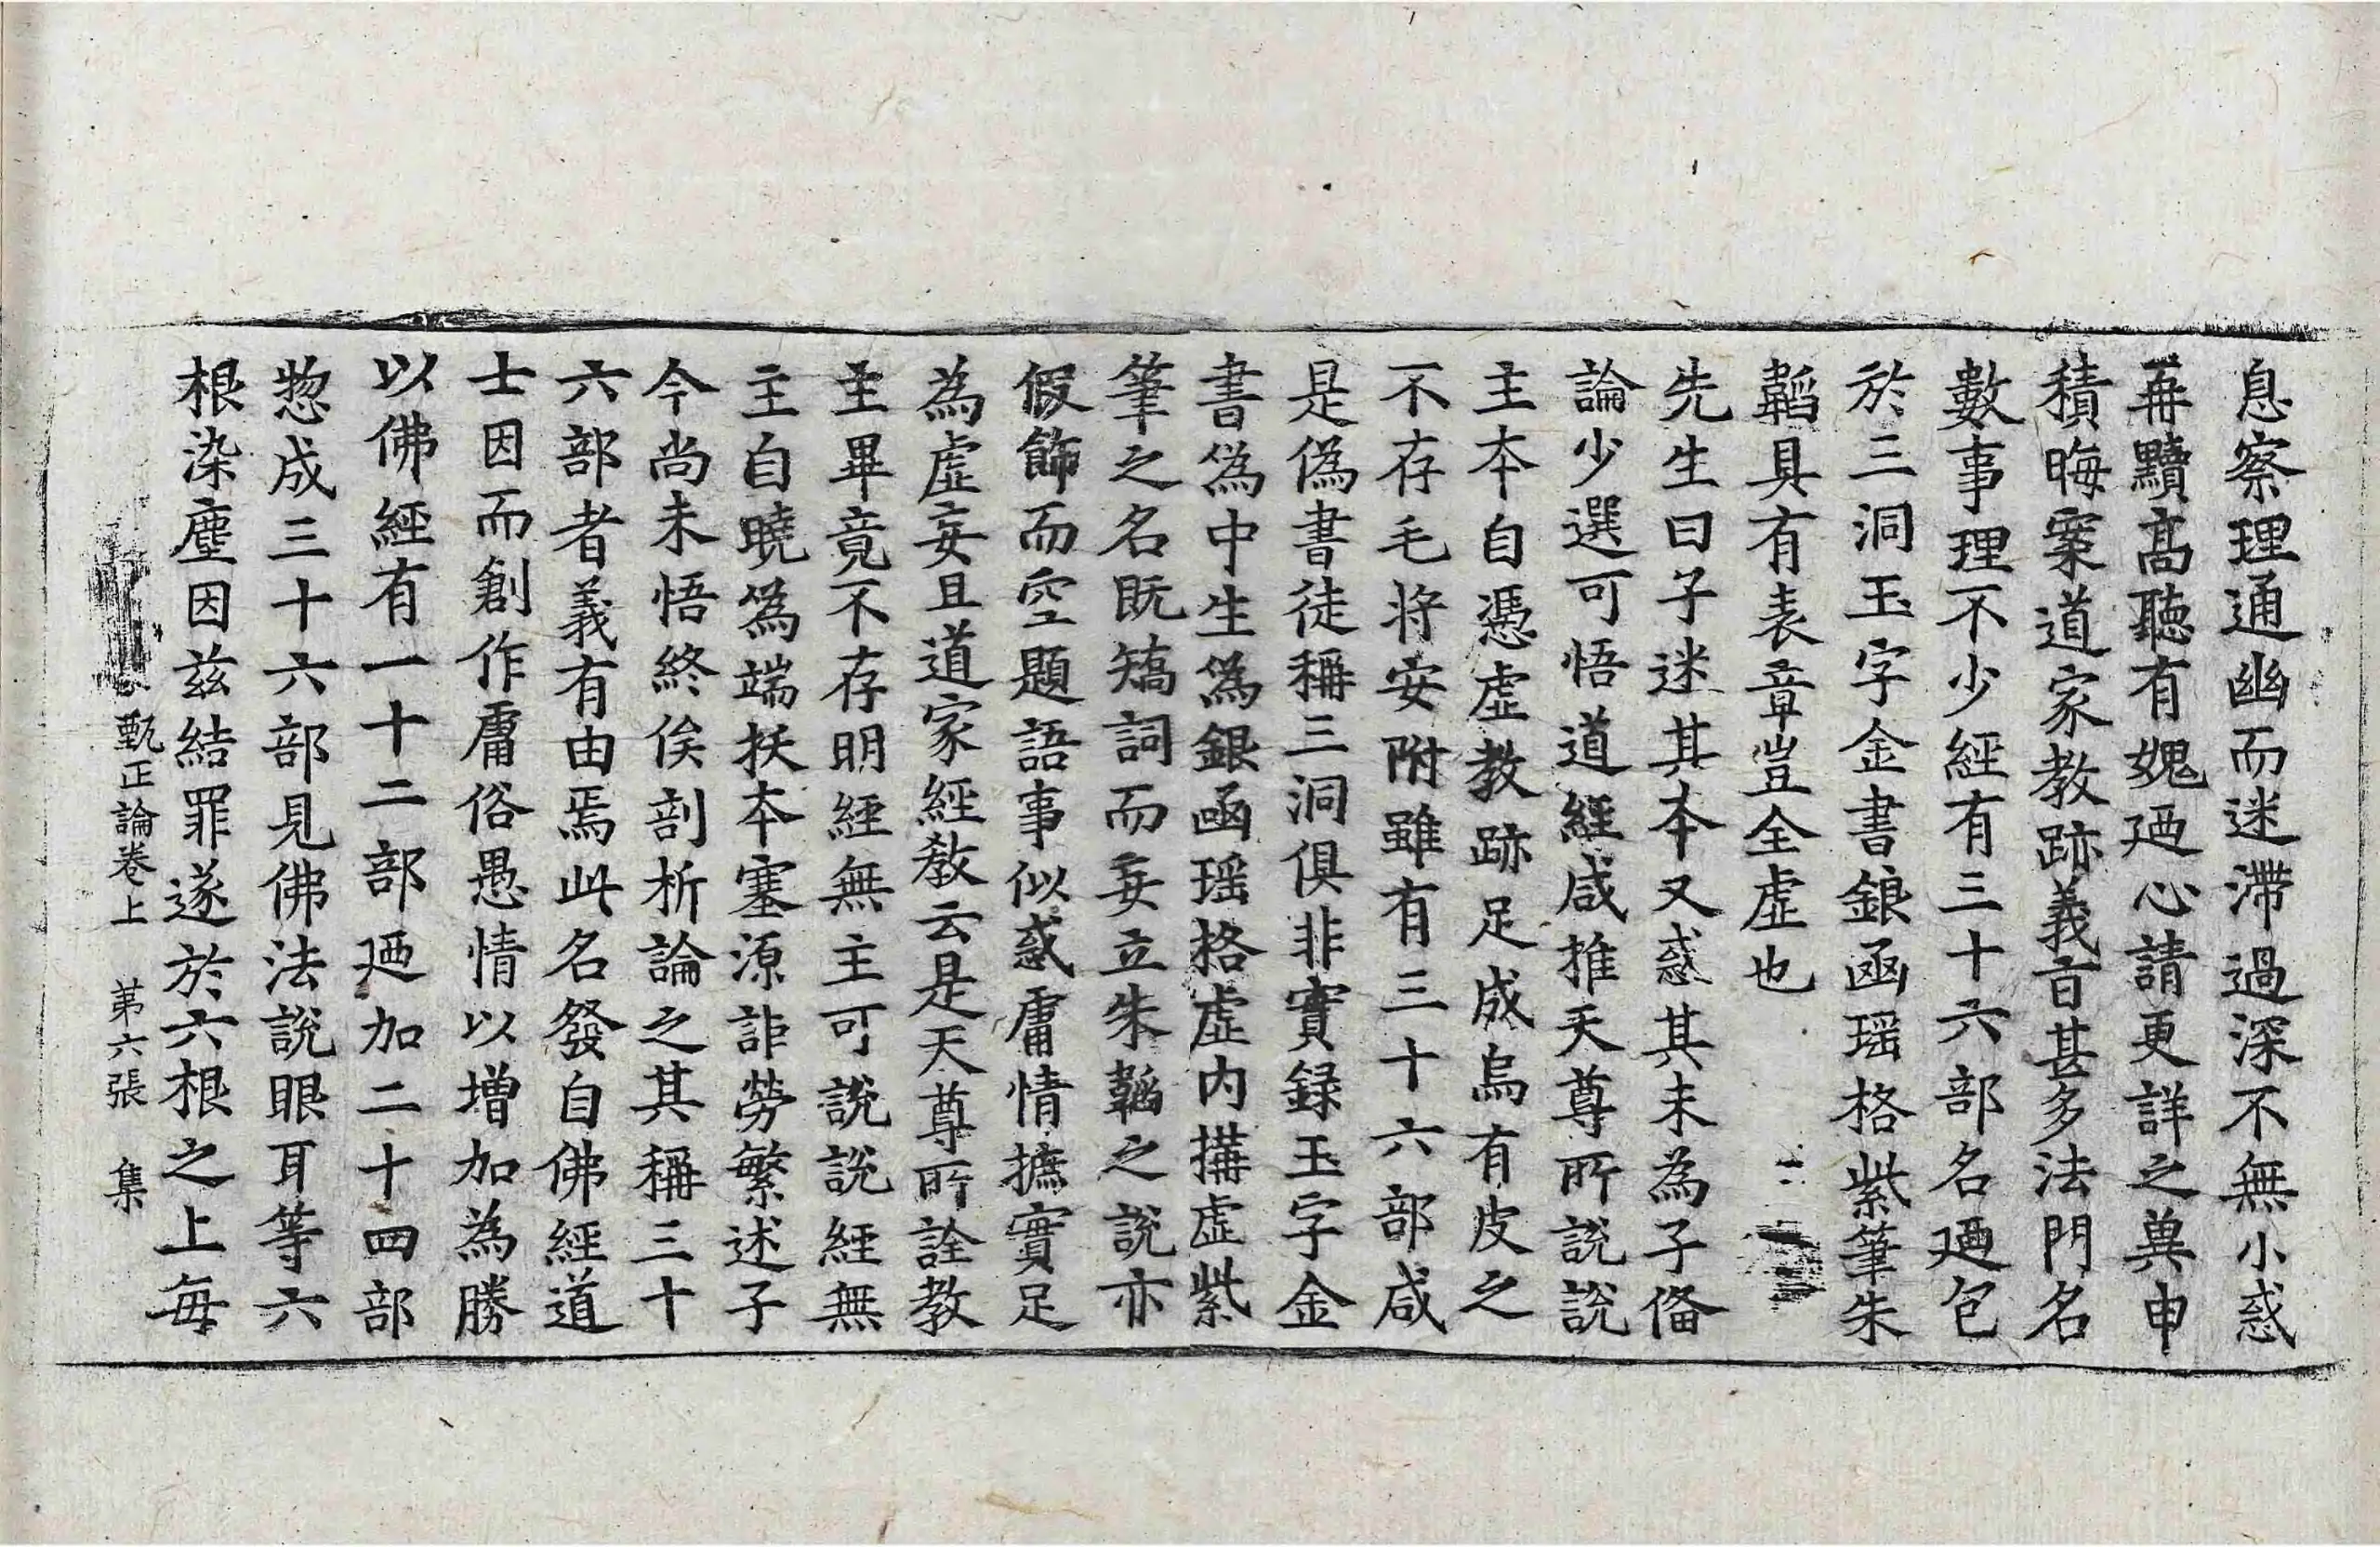 息察理通幽而迷滯過深不無小惑
再黷髙聽有媿廼心請更詳之冀申
積晦案道家教跡義百甚多法門名
數事理不少經有三十六部名廼包
於三洞玉字金書銀函瑶格紫筆朱
韜具有表章豈全虛也
先生曰子迷其本又惑其末為子俻
論少選可悟道經咸推天尊所說說
主本自憑虛教跡足成烏有皮之
不存毛將安附雖有三十六部咸
是偽書徒稱三洞俱非實録玉字金
書爲中生爲銀函瑶格虛内搆虛紫
筆之名既矯詞而妄立朱韜之說亦
假飾而空題語事似惑庸情摭實足
為虛妄且道家經教云是天尊所詮教
主畢竟不存明經無主可說說經無
主自曉爲端抚本塞源詎勞繁述子
今尚未悟終俟剖析論之其稱三十
六部者義有由焉此名發自佛經道
士因而創作庸俗愚情以增加為勝
以佛經有一十二部廼加二十四部
惣成三十六部見佛法說眼耳等六
根染塵因兹結罪遂於六根之上每
甄正論卷上　第六張　集